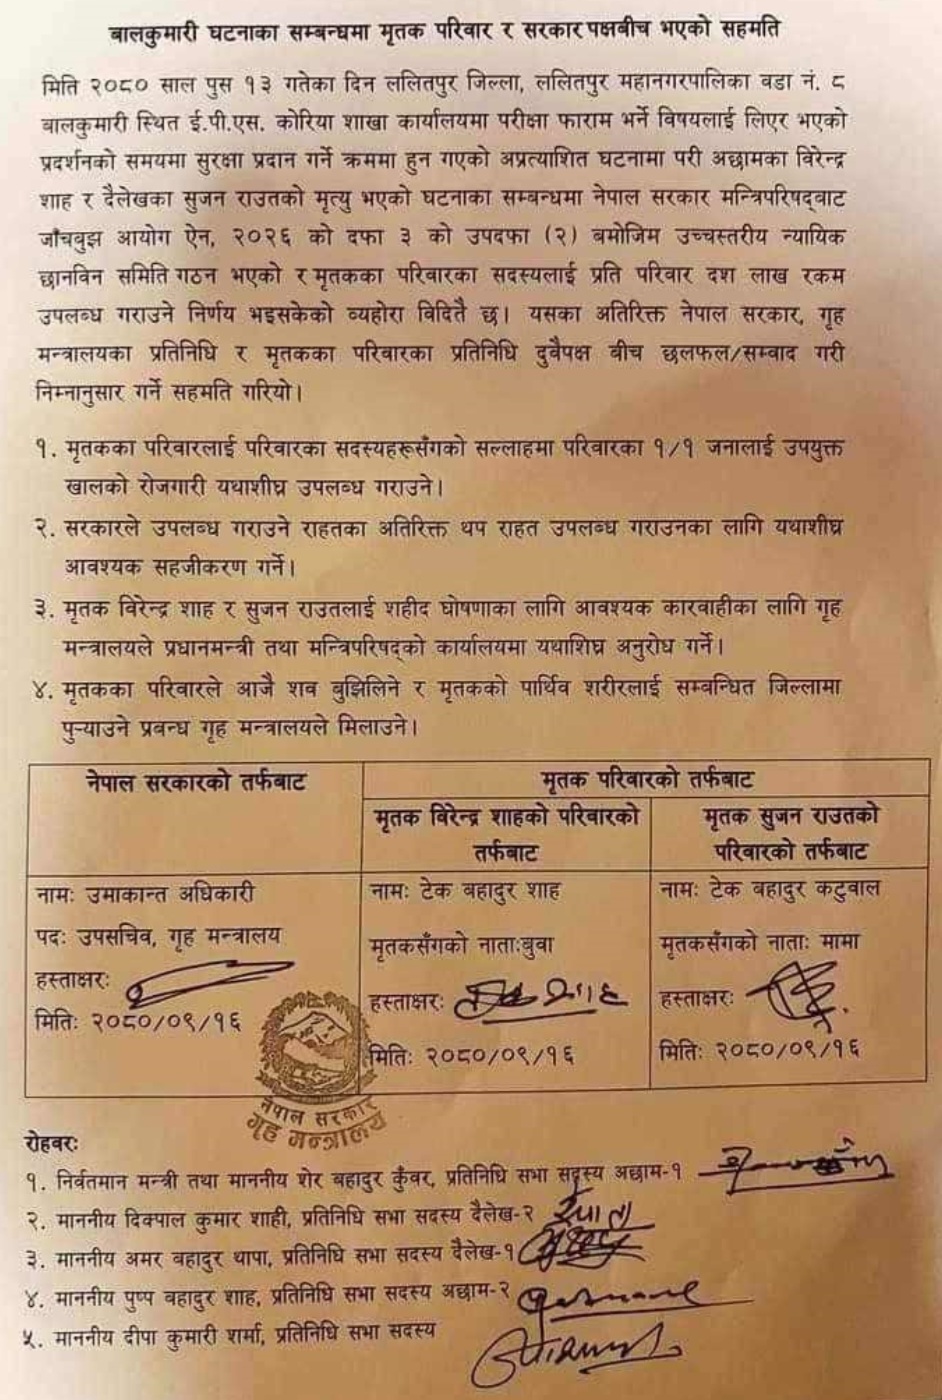 बालकुमारी घटनाका सम्बन्धमा मृतक परिवार र सरकार पक्षबीच भएको सहमति
मिति २०८० साल पुस १३ गतेका दिन ललितपुर जिल्ला, ललितपुर महानगरपालिका वडा नं. ८
बालकुमारी स्थित ई.पी.एस. कोरिया शाखा कार्यालयमा परीक्षा फाराम भर्ने विषयलाई लिएर भएको
प्रदर्शनको समयमा सुरक्षा प्रदान गर्ने क्रममा हुन गएको अप्रत्याशित घटनामा परी अछामका विरेन्द्र
शाह र दैलेखका सुजन राउतको मृत्यु भएको घटनाका सम्बन्धमा नेपाल सरकार मन्त्रिपरिषद्बाट
जाँचबुझ आयोग ऐन, २०२६ को दफा ३ को उपदफा (२) बमोजिम उच्चस्तरीय न्यायिक
छानविन समिति गठन भएको र मृतकका परिवारका सदस्यलाई प्रति परिवार दश लाख रकम
उपलब्ध गराउने निर्णय भइसकेको व्यहोरा विदितै छ। यसका अतिरिक्त नेपाल सरकार, गृह
मन्त्रालयका प्रतिनिधि र मृतकका परिवारका प्रतिनिधि दुवैपक्ष बीच छलफल/सम्वाद गरी
निम्नानुसार गर्ने सहमति गरियो।
१. मृतकका परिवारलाई परिवारका सदस्यहरूसँगको सल्लाहमा परिवारका १/१ जनालाई उपयुक्त
खालको रोजगारी यथाशीघ्र उपलब्ध गराउने।
२. सरकारले उपलब्ध गराउने राहतका अतिरिक्त थप राहत उपलब्ध गराउनका लागि यथाशीघ्र
आवश्यक सहजीकरण गर्ने।
३. मृतक विरेन्द्र शाह र सुजन राउतलाई शहीद घोषणाका लागि आवश्यक कारवाहीका लागि गृह
मन्त्रालयले प्रधानमन्त्री तथा मन्त्रिपरिषद्को कार्यालयमा यथाशिघ्र अनुरोध गर्ने।
४. मृतकका परिवारले आजै शव बुझिलिने र मृतकको पार्थिव शरीरलाई सम्बन्धित जिल्लामा
पुऱ्याउने प्रबन्ध गृह मन्त्रालयले मिलाउने।
नेपाल सरकारको तर्फबाट
मृतक परिवारको तर्फबाट
मृतक विरेन्द्र शाहको परिवारको तर्फबाट
मृतक सुजन राउतको परिवारको तर्फबाट
नामः उमाकान्त अधिकारी
पदः उपसचिव, गृह मन्त्रालय
हस्ताक्षरः
मितिः २०८०/०९/१६
नामः टेक बहादुर शाह
मृतकसँगको नाताःबुवा
हस्ताक्षरः
मितिः २०८०/०९/१६
नामः टेक बहादुर कटुवाल
मृतकसँगको नाताः मामा
हस्ताक्षरः
मितिः २०८०/०९/१६
नेपाल सरकार
गृह मन्त्रालय
रोहवरः
१. निर्वतमान मन्त्री तथा माननीय शेर बहादुर कुँवर, प्रतिनिधि सभा सदस्य अछाम-१
२. माननीय दिक्पाल कुमार शाही, प्रतिनिधि सभा सदस्य दैलेख-२
३. माननीय अमर बहादुर थापा, प्रतिनिधि सभा सदस्य दैलेख-१
४. माननीय पुष्प बहादुर शाह, प्रतिनिधि सभा सदस्य अछाम-२
५. माननीय दीपा कुमारी शर्मा, प्रतिनिधि सभा सदस्य